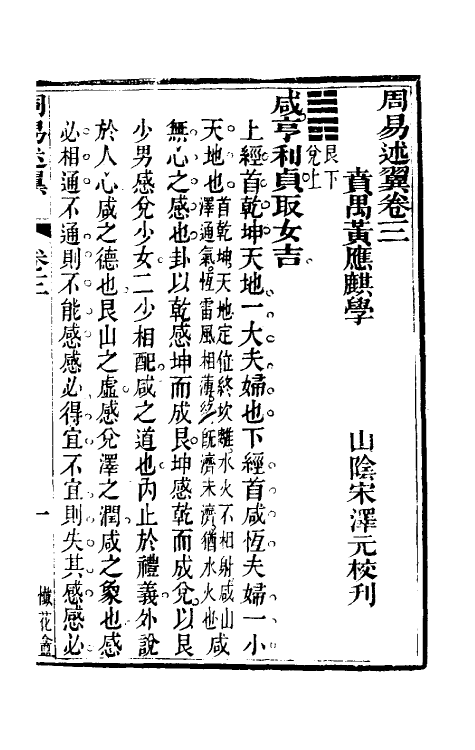 周易述翼卷三
番禺黃應麒學　山陰宋澤元校刊
艮下
兌上
咸亨利貞取女吉
上經首乾坤天地一大夫婦也下經首咸恆夫婦一小
天地也首乾坤天地定位終坎離水火不相射咸山
澤通氣恆雷風相薄終既濟未濟猶水火也咸
無心之感也卦以乾感坤而成艮坤感乾而成兌以艮
少男感兌少女二少相配咸之道也內止於禮義外說
於人心咸之德也艮山之虛感兌澤之潤咸之象也感
必相通不通則不能感感必得宜不宜則失其感感必
周易述翼　卷三　一　懺花盦